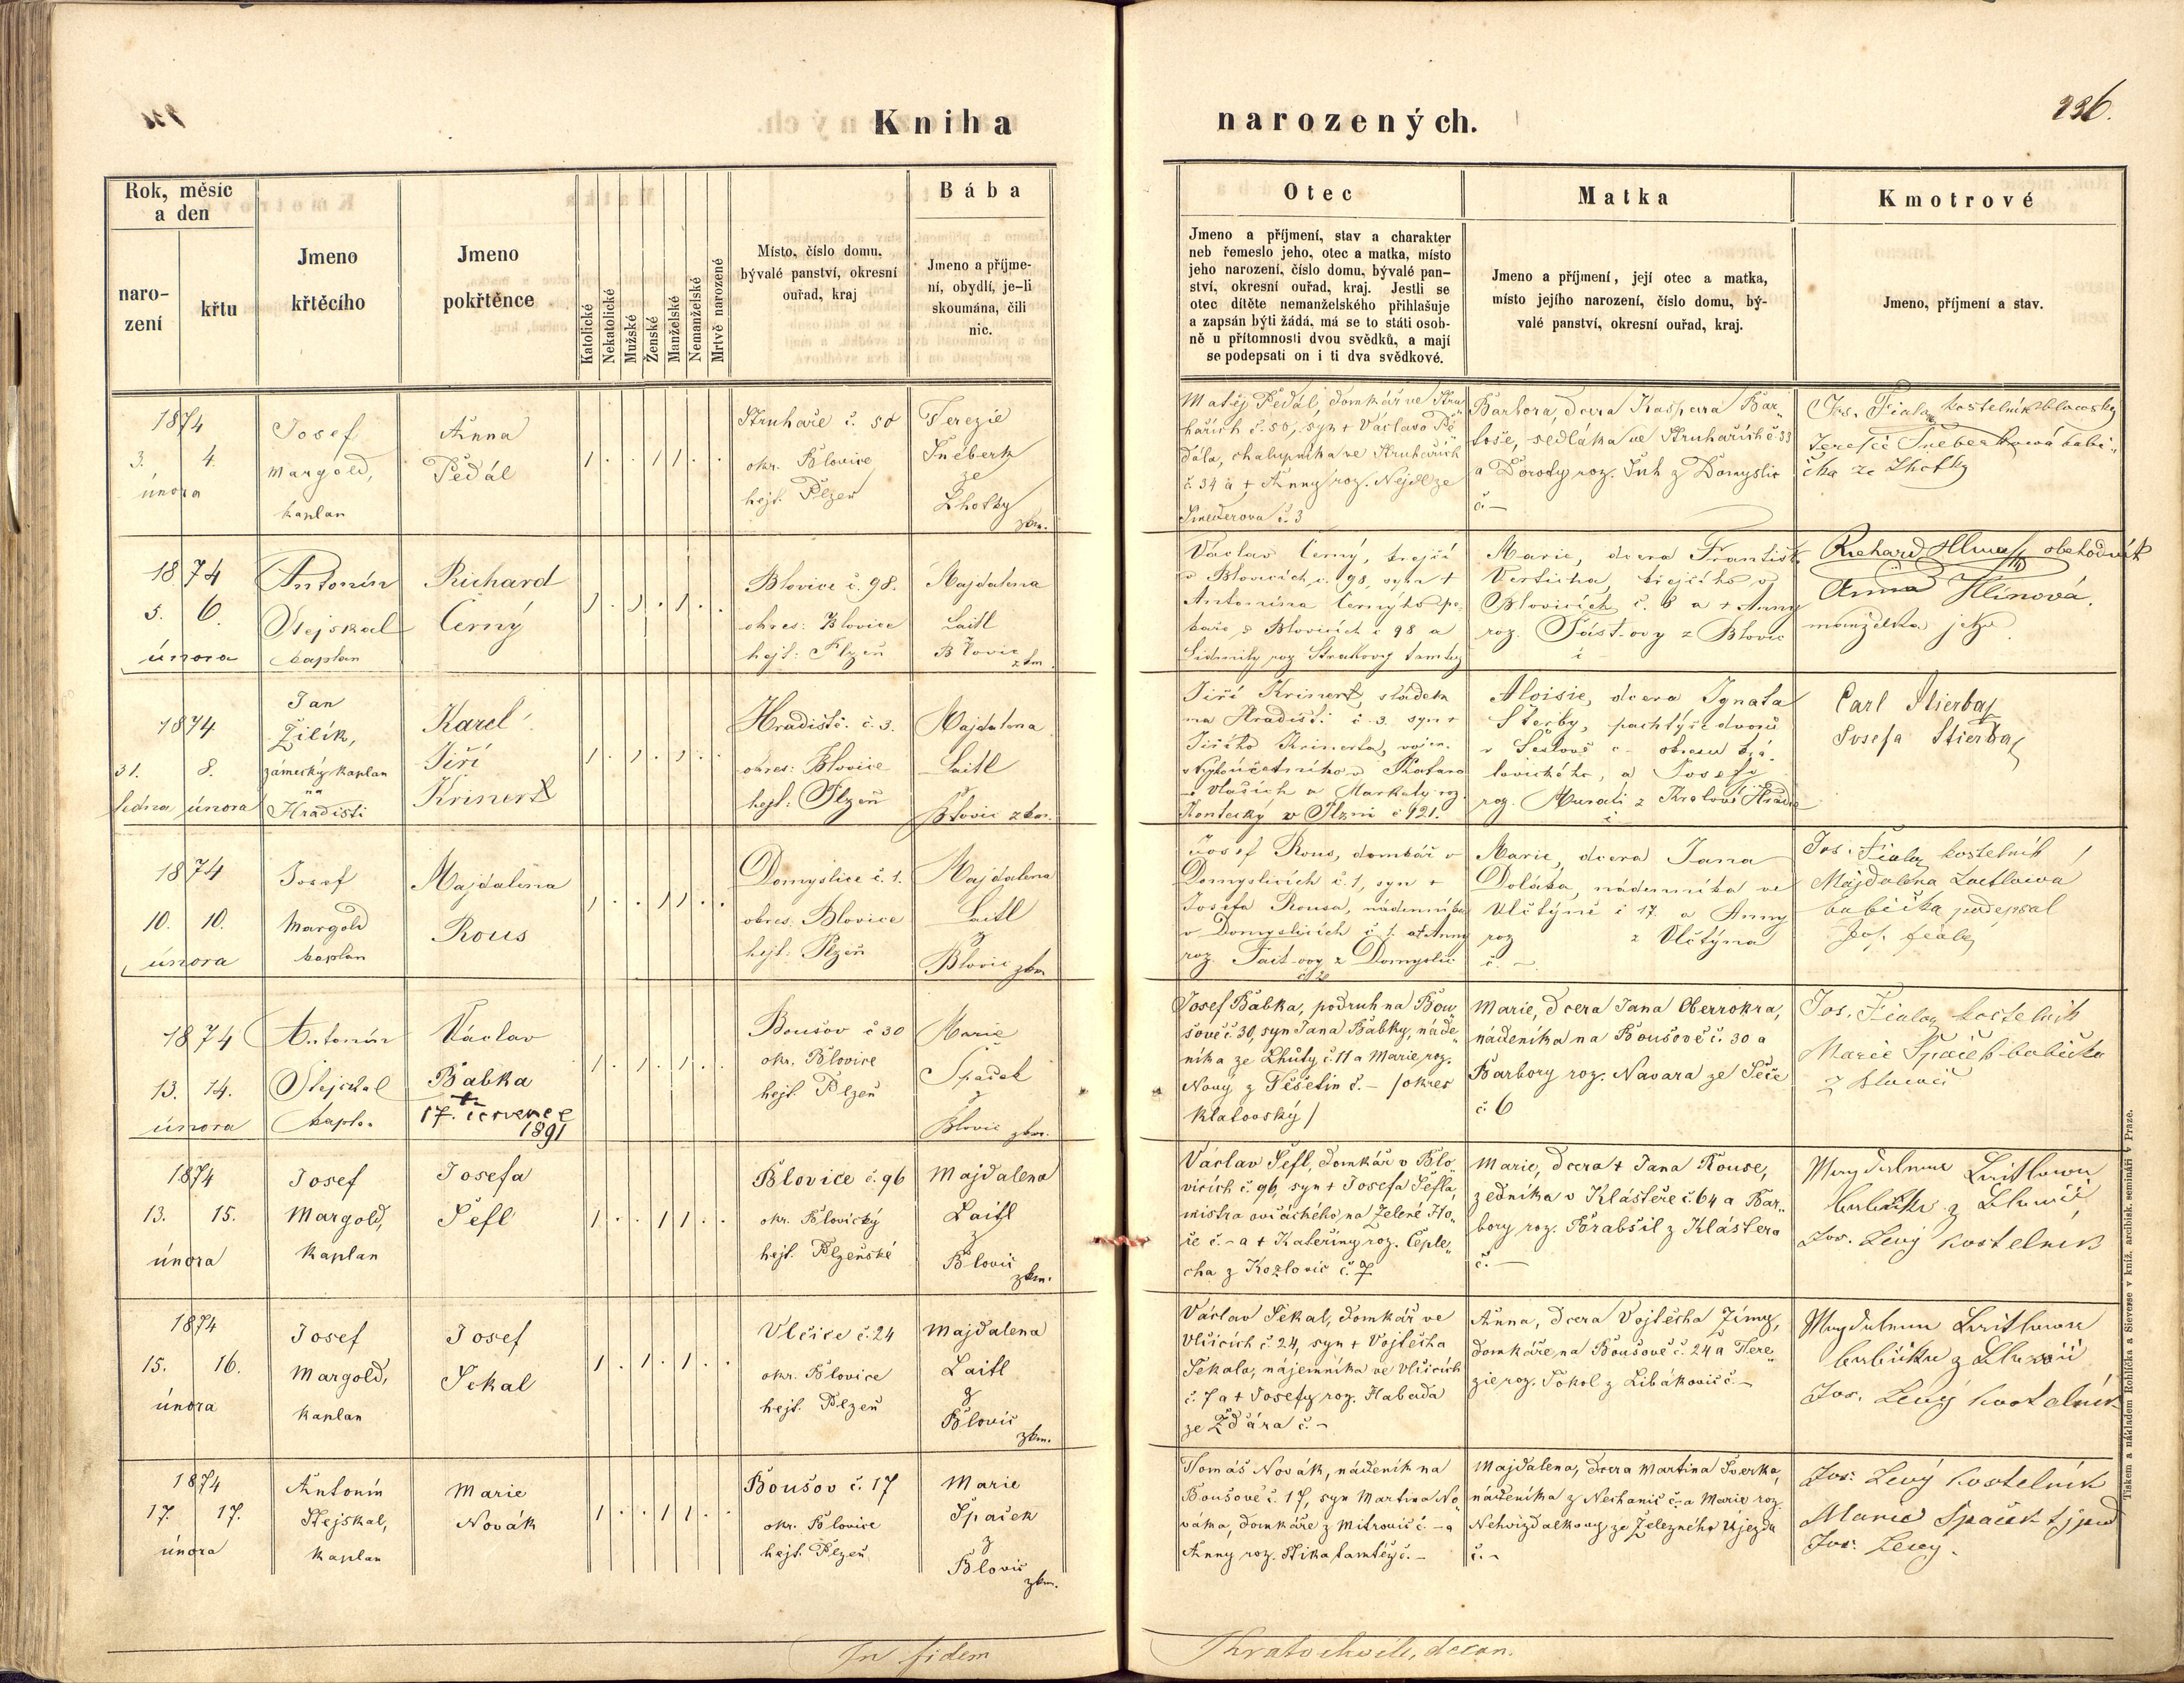 Kniha
narozených.
226.
Rok, měsíc
a den
naro-
zení
křtu
Jmeno
křtěcího
Jmeno
pokřtěnce
Katolické
Nekatolické
Mužské
Ženské
Manželské
Nemanželské
Mrtvě narozené
Místo, číslo domu,
bývalé panství, okresní
ouřad, kraj
Bába
Jmeno a příjme-
ní, obydlí, je-li
skoumána, čili
nic.
Otec
Jmeno a příjmení, stav a charakter
neb řemeslo jeho, otec a matka, místo
jeho narození, číslo domu, bývalé pan-
ství, okresní ouřad, kraj. Jestli se
otec dítěte nemanželského přihlašuje
a zapsán býti žádá, má se to státi osob-
ně u přítomnosti dvou svědků, a mají
se podepsati on i ti dva svědkové.
Matka
Jmeno a příjmení, její otec a matka,
místo jejího narození, číslo domu, bý-
valé panství, okresní ouřad, kraj.
Kmotrové
Jmeno, příjmení a stav.
1874
3. 4.
února
Josef
Margold,
kaplan
Anna
Pedál
Struhaře č. 50
okr. Blovice
hejt. Plzeň
Terezie
Šneberk
ze
Lhotky
zkm.
Matěj Pedál, domkář ve Stru„
hařích č. 50, syn + Václava Pe
dála, chalupníka ve Struhařích
č. 34 a + Anny roz. Nejdl ze
č. 3
Barbora, dcera Kašpara Bar„
toše, sedláka ve Struhařích č. 33
a Doroty roz. Suk z Domyslic
č. –
Jos. Fiala, kostelník blovický
Terezie Šneberková babi„
čka ze Lhotky
1874
5. 6.
února
Antonín
Stejskal
kaplan
Richard
Černý
Blovice č. 98.
okres: Blovice
hejt: Plzeň
Majdalena
Laitl
Blovic
zkm.
Václav Černý, krejčí
v Blovicích č. 98, syn +
Antonína Černýho pe
kaře z Blovicích č 98 a
Lidmily roz Strakovy tamtéž
Marie, dcera Františka
krejčího v
Blovicích č. 8 a + Anny
roz. z Blovic
č
Richard Hlina obchodník
Anna Hlinová.
manželka jeho
1874
31. 8.
ledna února
Jan
Žilík,
zámecký kaplan
na
Hradišti
Karel
Jiří
Krinert
Hradiště č. 3.
okres: Blovice
hejt: Plzeň
Majdalena
Laitl
z
Blovic zkm.
Jiří Krinert, sládek
na Hradišti č 3. syn +
Jiřího Krinerta, vojen.
a Markety roz.
v Plzni č 121.
Aloisie, dcera Ignáta
Štěrby, pachtýře dvorů
a Josefy
roz. z Králové Hradce
č
Carl Stierba
Josefa Stierba
1874
10. 10.
února
Josef
Margold
kaplan
Majdalena
Rous
Domyslice č. 1.
okres. Blovice
hejt: Plzeň
Majdalena
Laitl
z
Blovic zkm
Josef Rous, domkář v
Domyslicích č. 1, syn +
Josefa Rousa, nádenníka
v Domyslicích č 1. a + Anny
roz. z Domyslic
Marie, dcera Jana
Doláka, nádenníka ve
Vlčtýně č 17. a Anny
roz z Vlčtýna
č. –
Jos. Fiala, kostelník
Majdalena Laitlová
babička podepsal
Jos. Fiala
1874
13. 14.
února
Antonín
Stejskal
kaplan
Václav
Babka
+
17. července
1891
Boušov č 30
okr. Blovice
hejt. Plzeň
Marie
Špaček
z
Blovic zkm.
Josef Babka, podruh na Bou„
šově č. 30, syn Jana Babky, náde„
níka ze Lhůty č. 11 a Marie roz.
Nový z Těšetin č. – /okres
klatovský/
Marie, dcera Jana Oberrokra,
nádeníka na Boušově č. 30 a
Barbory roz. Navara ze Seče
č. 6
Jos. Fiala, kostelník
Marie Špaček babička
z Blovic
1874
13. 15.
února
Josef
Margold,
kaplan
Josefa
Šefl
Blovice č. 96
okr. Blovický
hejt. Plzeňské
Majdalena
Laitl
z
Blovic
zkm.
Václav Šefl, domkář v Blo
vicích č. 96, syn + Josefa Šefla,
mistra ovčáckého na Zelené Ho„
ře č. – a + Kateřiny roz. Ceple„
cha z Kozlovic č. 7
Marie, dcera + Jana Rouse,
zedníka v Klášteře č. 64 a Bar„
bory roz. Brabšil z Kláštera
č. –
Magdalena Laitlowa
babička z Blowic
Jos. Levý kostelník
1874
15. 16.
února
Josef
Margold,
kaplan
Josef
Sekal
Vlčice č. 24
okr. Blovice
hejt. Plzeň
Majdalena
Laitl
z
Blovic
zkm.
Václav Sekal, domkář ve
Vlčicích č. 24, syn + Vojtěcha
Sekala, nájemníka ve Vlčicích
č. 7 a + Josefy roz. Habada
ze Žďára č. –
Anna, dcera Vojtěcha Zímy,
domkáře na Boušově č. 24 a Tere„
zie roz. Sokol z Libákovic č. –
Magdalena Laitlowa
babička z Blowic
Jos. Levý kostelník
1874
17. 17.
února
Antonín
Stejskal,
kaplan
Marie
Novák
Boušov č. 17
okr. Blovice
hejt. Plzeň
Marie
Špaček
z
Blovic
zkm.
Tomáš Novák, nádeník na
Boušově č. 17, syn Martina No
váka, domkáře z Mitrovic č. – a
Anny roz. Stika tamtéž č. –
Majdalena, dcera Martina Šverka,
nádeníka z Nechanic č. – a Marie roz.
Nehvizdalkovy ze Železného Újezda
č. –
Jos. Levý kostelník
Marie Špaček
Jos. Levý.
In fidem
Kratochvíle, decan.
Tiskem a nákladem Rohlíčka a Sieverse v kníž. arcibisk. semináři v Praze.